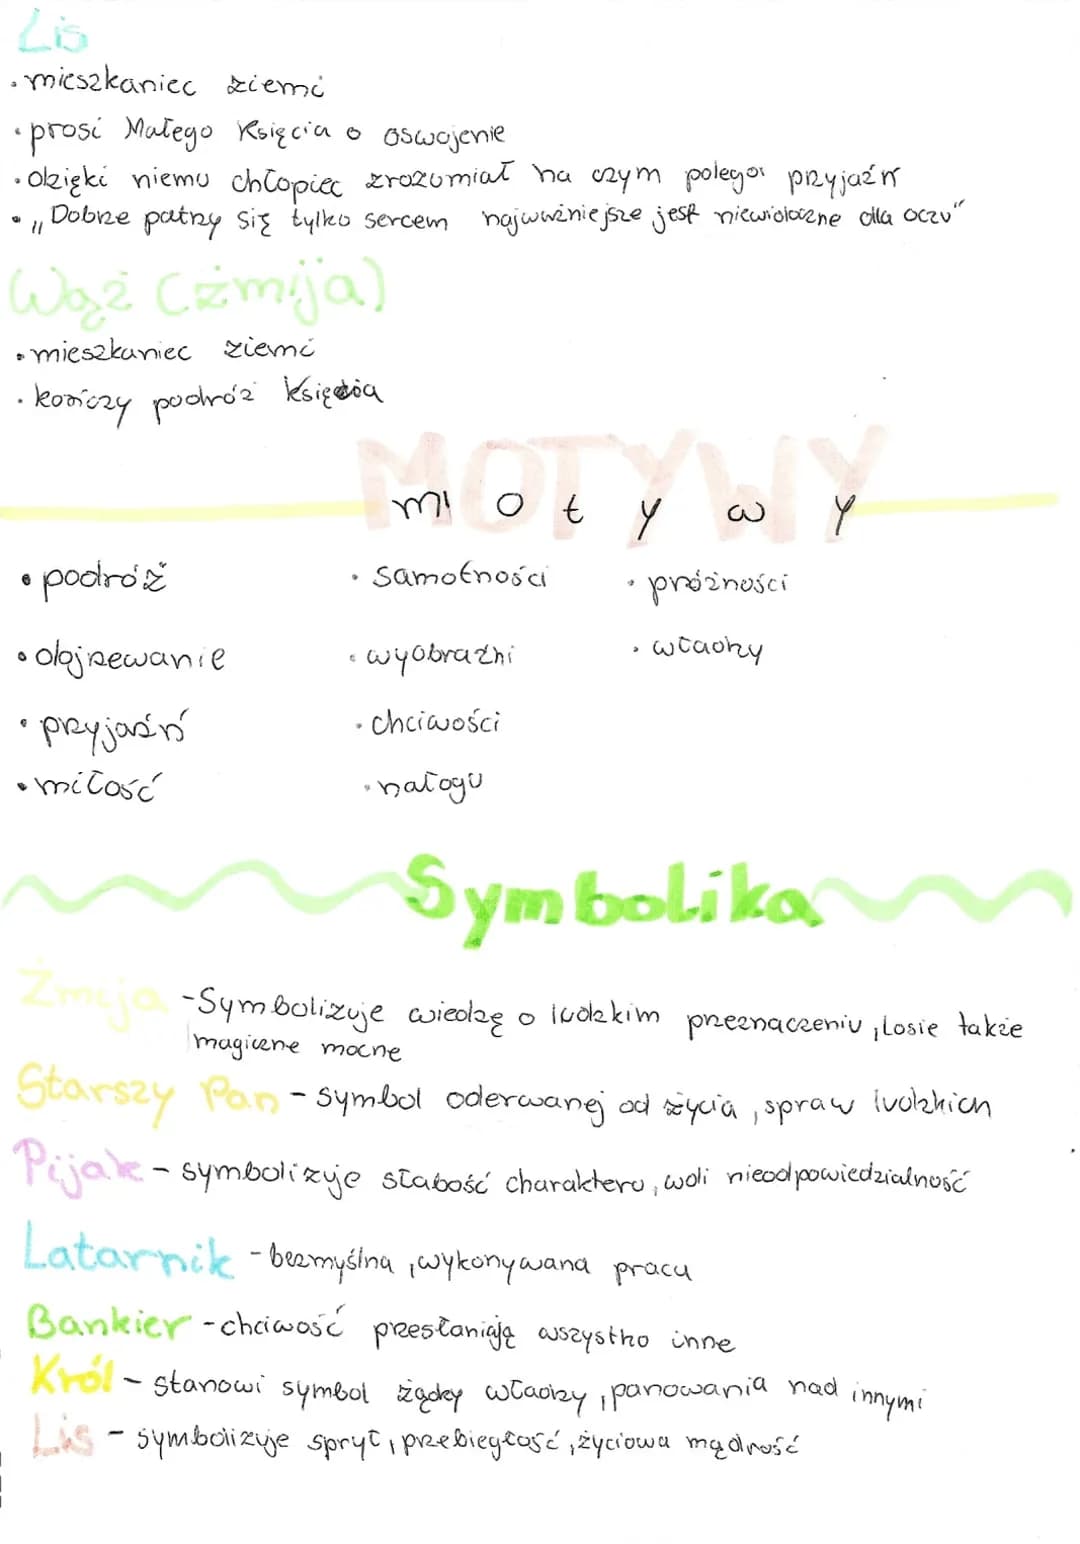 Lis
• mieszkaniec ziemi
• prosi Małego Księcia o oswojenie
• dzięki niemu chłopiec zrozumiał na czym polega przyjaźń
• „Dobrze patrzy się tylko sercem najważniejsze jest niewidoczne dla oczu"
Wąż (żmija)
• mieszkaniec ziemi
• kończy podróż Księcia
MOTYWY
motywy
• podróż • samotności • próżności
• dojrzewanie • wyobraźni • władzy
• przyjaźń • chciwości
• miłość • nałogu
Symbolika
Żmija - Symbolizuje wiedzę o ludzkim przeznaczeniu, Losie także
magiczne mocne
Starszy Pan - symbol oderwanej od życia, spraw ludzkich
Pijak - symbolizuje słabość charakteru, woli nieodpowiedzialność
Latarnik - bezmyślna, wykonywana praca
Bankier - chciwość przesłaniają wszystko inne
Król - stanowi symbol żądzy władzy, panowania nad innymi
Lis - symbolizuje spryt, przebiegłość, życiowa mądrość